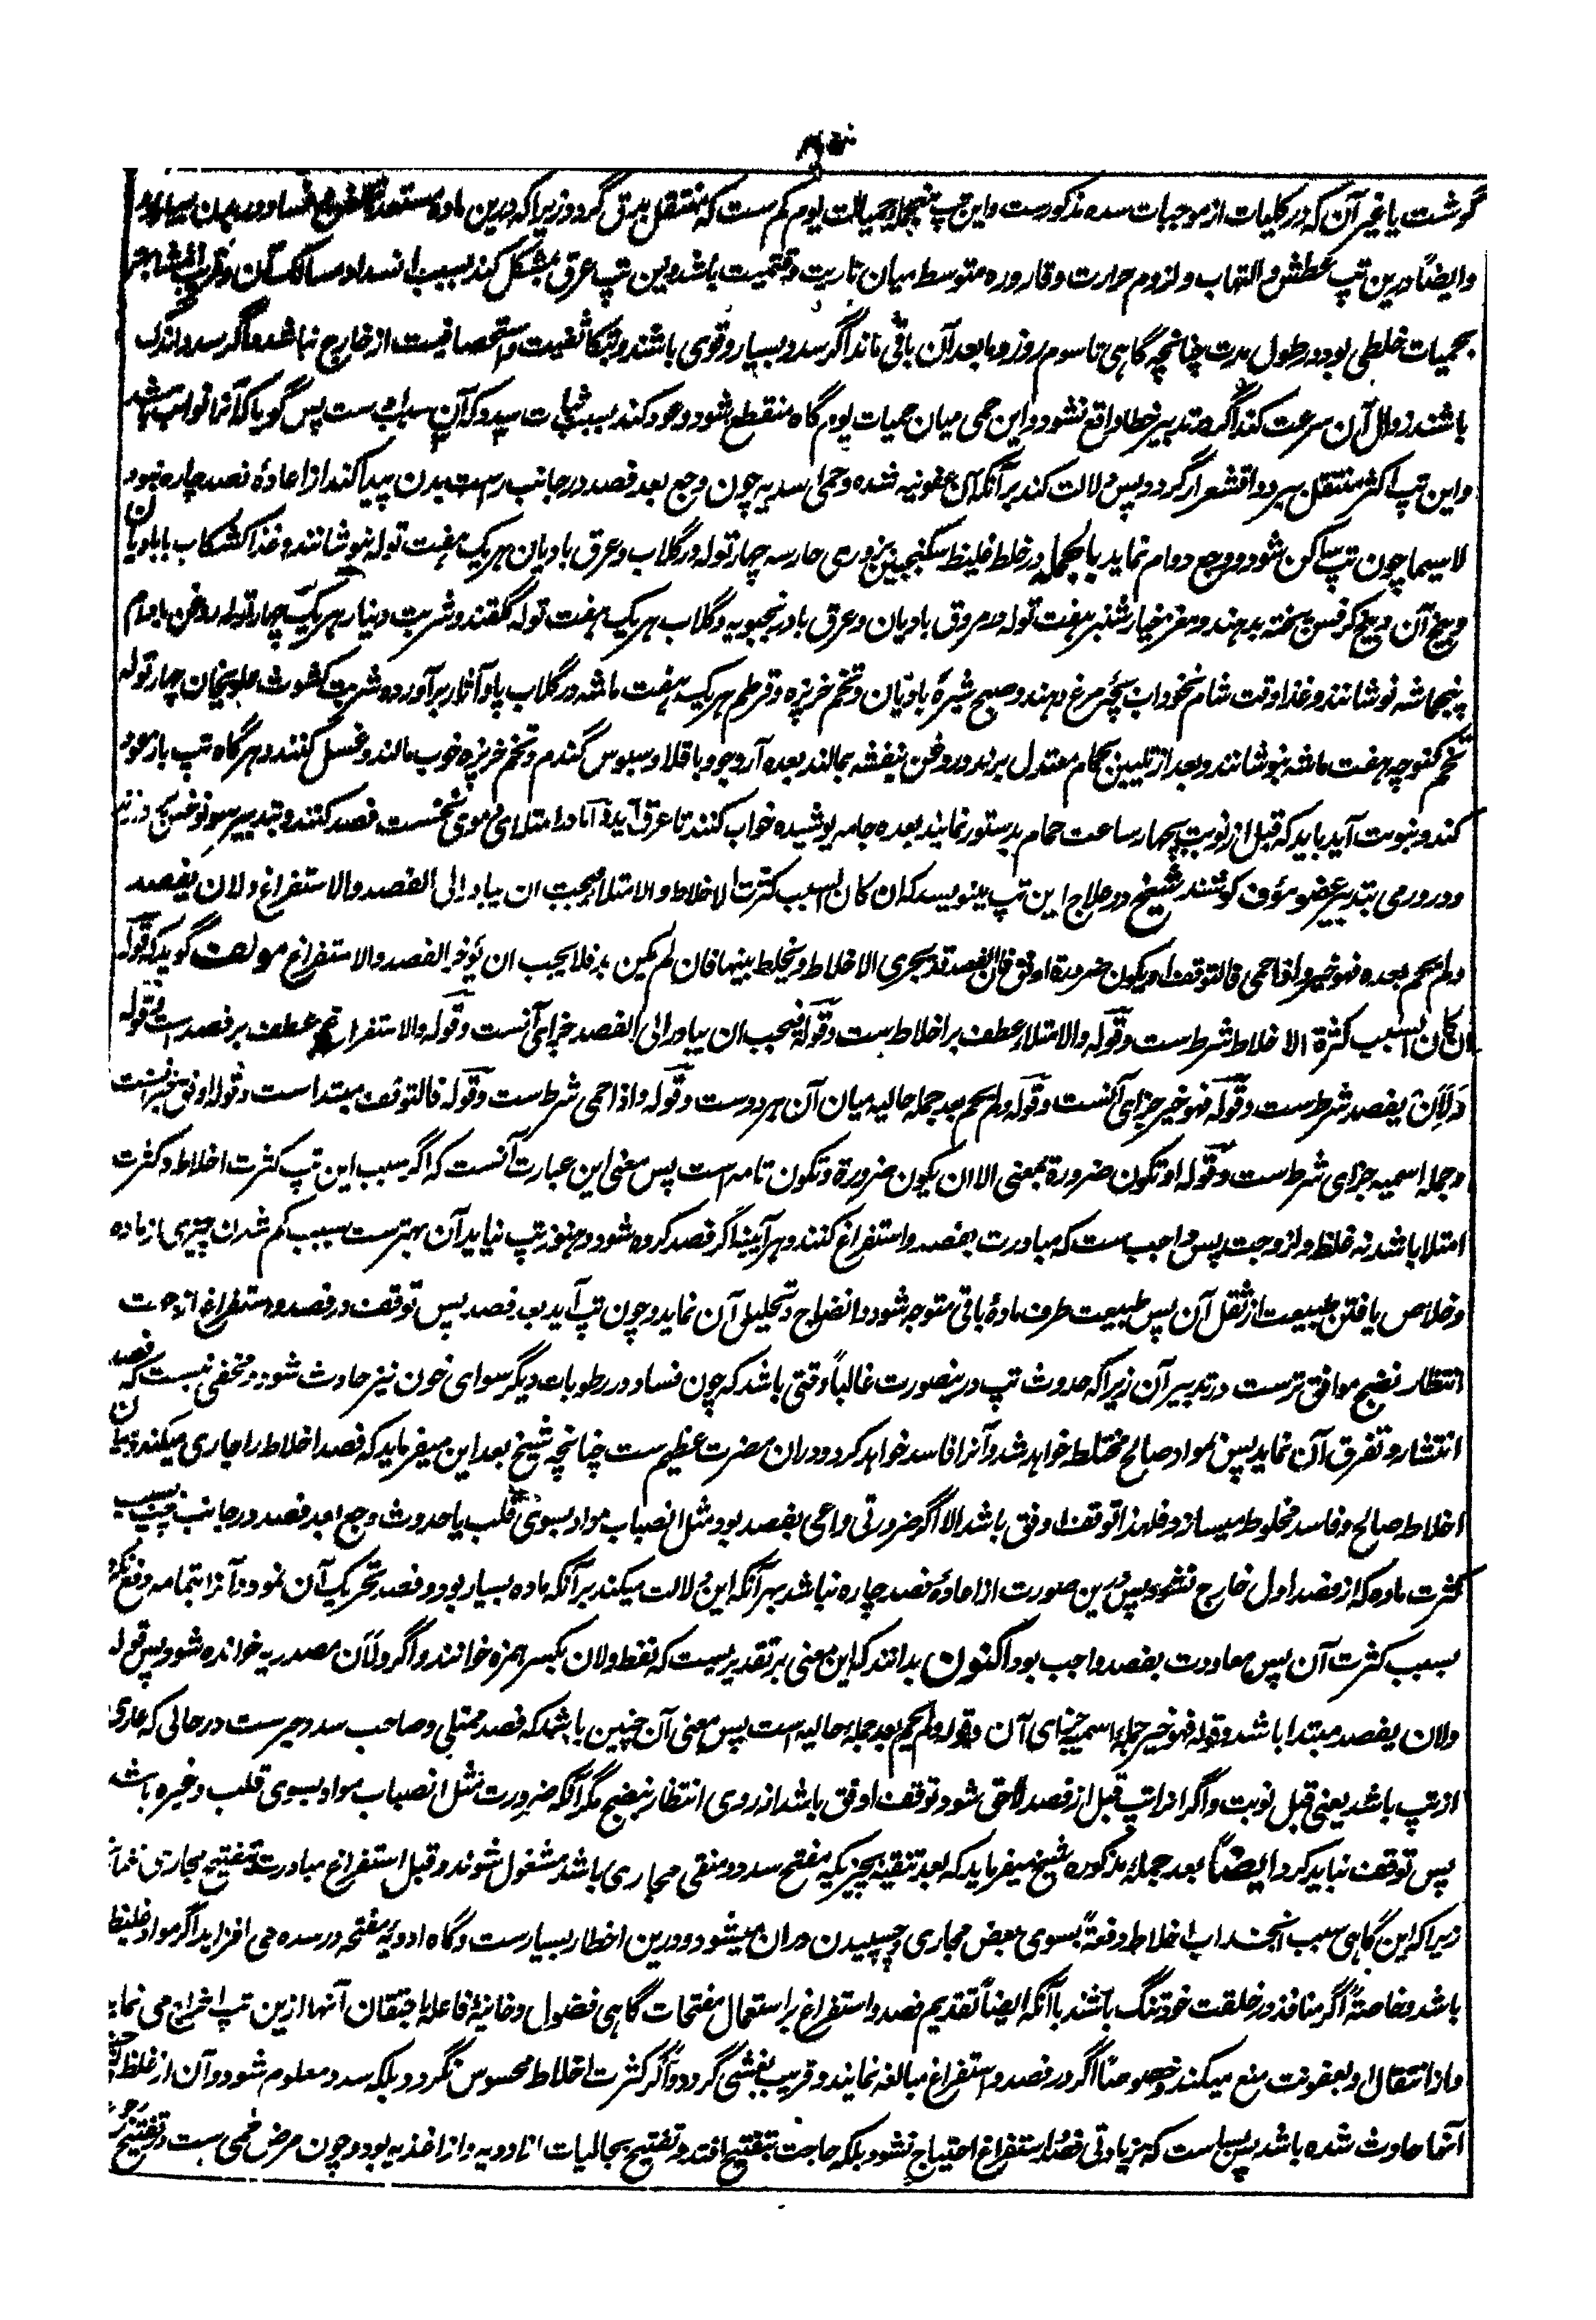 گوشت یا غیر آن که در کلیات از موجبات سده مذکورست و این تپ منجمله حمیات یوم کم ست که منتقل بدق گردد زیراکه درین ماده مستعد
وایضاً درین تپ عطش و التهاب و لزوم حرارت و قاروره متوسط میان ناریت و قتمیت باشد و این تپ عرق مشکل کند بسبب انسداد مسالک آن
بحمیات خلطی بود در طول مدت چنانچه گاهی تا سوم روز و ما بعد آن باقی ماند اگر سدد بسیار و قوی باشند و تکاثفیت و استحصافیت از خارج نباشد و اگر سدد اندک
باشند زوال آن سرعت کند اگر در تدبیر خطا واقع نشود و این حمی میان حمیات یوم گاه منقطع شود و عود کند بسبب ثبات سدد که آن ست پس گویا که آنرا نوائب
و این تپ اکثر منتقل ببرد و اقشعرار گردد پس دلالت کند بر آنکه آن عفونیه شده و حمی سدیه چون وجع بعد فصد در جانب راست بدن پیدا کند از اعادۀ فصد چاره نبود
لاسیما چون تپ ساکن شود و وجع دوام نماید بالجمله در خلط غلیظ سکنجبین بزوری حار سه چهار توله در گلاب و عرق بادیان هر یک هفت توله بنوشانند و غذا کشکاب با بادیان
و بیخ آن و بیخ کرفس پخته بدهند و مغز خیارشنبر هفت توله در مروق بادیان و عرق بادرنجبویه و گلاب هر یک هفت توله گلقند و شربت دینار هر یک چهار توله روغن بادام
پنجماشه نوشانند و غذا وقت شام نخودآب بچۀ مرغ دهند و صبح شیرۀ بادیان و تخم خرپزه و قرطم هر یک هفت ماشه در گلاب پاو آثار برآورده شربت کشوث چهار توله
تخم کنوچه هفت ماشه بنوشانند و بعد از تلیین بحمام معتدل برند و روغن بنفشه بمالند بعده آرد جو و باقلا و سبوس گندم و تخم خرپزه خوب مالند و غسل کنند و هر گاه تپ باز عود
کند و بنوبت آید باید که قبل از نوبت بچهار ساعت حمام بدستور نمایند بعده جامه پوشیده خواب کنند تا عرق آید و اما در امتلای دموی نخست فصد کنند و بتدبیر
و در ورمی بتدبیر عضو مؤف کوشند شیخ در علاج این تپ مینویسد که ان کان السبب کثرت الاخلاط والامتلاء فیجب ان یبادر الی الفصد والاستفراغ ولان یفصد
ولم یحم بعده فهو خیر واذا حمی فالتوقف اویکون ضرورة اوفق فان الفصد قد یجری الاخلاط ویخلط بینها فان لم یکن بد فلا یجب ان یؤخر الفصد والاستفراغ مولف گوید که قوله
ان کان السبب کثرة الاخلاط شرط ست وقوله والامتلاء عطف بر اخلاط ست وقوله فیجب ان یبادر الی الفصد جزای آنست وقوله والاستفراغ عطف بر فصد است وقوله
ولان یفصد شرط ست وقوله فهو خیر جزای آنست وقوله ولم یحم بعد جمله حالیه میان آن هر دو ست وقوله واذا حمی شرط ست وقوله فالتوقف مبتدا ست وقوله اوفق خبر آنست
و جمله اسمیه جزای شرط ست وقوله او تکون ضرورة بمعنی الا ان یکون ضرورة و تکون تامه است پس معنی این عبارت آنست که اگر سبب این تپ کثرت اخلاط و کثرت
امتلا باشد نه غلظ و لزوجت پس واجب ست که مبادرت بفصد و استفراغ کنند و هر آیینه اگر فصد کرده شود و هنوز تپ نیاید آن بهتر ست بسبب کم شدن چیزی از ماده
و خلاص یافتن طبیعت از ثقل آن پس طبیعت طرف مادۀ باقی متوجه شود و انضاج و تحلیل آن نماید و چون تپ آید بعد فصد پس توقف در فصد و استفراغ از جهت
انتظار نضج موافق تر ست در تدبیر آن زیراکه حدوث تپ درینصورت غالباً وقتی باشد که چون فساد در رطوبات دیگر سوای خون نیز حادث شود و مخفی نیست که فصد
انتشار و تفرق آن نماید پس بمواد صالح مختلط خواهد شد و آنرا فاسد خواهد کرد و دران مضرت عظیم ست چنانچه شیخ بعد این میفرماید که فصد اخلاط را جاری میکند و میان
اخلاط صالح و فاسد مخلوط میسازد و فلهذا توقف اوفق باشد الا اگر ضرورتی داعی بفصد بود مثل انصباب مواد بسوی قلب یا حدوث وجع بعد فصد در جانب بسبب
کثرت ماده که از فصد اول خارج نشود پس درین صورت از اعادۀ فصد چاره نباشد بهر آنکه این دلالت میکند بر آنکه ماده بسیار بود و فصد تحریک آن نمود و آنرا بتمامه دفع نکرد
بسبب کثرت آن پس معاودت بفصد واجب بود اکنون بدانند که این معنی بر تقدیر یست که لفظ ولان بکسر همزه خوانند و اگر ولأن مصدریه خوانده شود پس قوله
ولان یفصد مبتدا باشد و قوله فهو خیر جمله اسمیه خبر آن وقوله ولم یحم بعد جمله حالیه است پس معنی آن چنین باشد که فصد ممتلی و صاحب سدد خیر ست در حالی که عاری
از تپ باشد یعنی قبل نوبت و اگر او را تپ قبل از فصد لاحق شود توقف اوفق باشد از روی انتظار نضج مگر آنکه ضرورت مثل انصباب مواد بسوی قلب و غیره باشد
پس توقف نباید کرد ایضاً بعد جملۀ مذکوره شیخ میفرماید که بعد تنقیه بچیزیکه مفتح سدد و منقی مجاری باشد مشغول شوند و قبل استفراغ مبادرت بتفتیح مجاری ننمایند
زیراکه این گاهی سبب انجذاب اخلاط دفعةً بسوی بعض مجاری و چسپیدن دران میشود و درین اخطار بسیار ست و گاه ادویۀ مفتحه در سده می افزاید اگر مواد غلیظ
باشد و خاصةً اگر منافذ در خلقت خود تنگ باشند با آنکه ایضاً تقدیم فصد و استفراغ بر استعمال مفتحات گاهی فضول دخانیۀ فاعله باحتقان آنها ازین تپ اخراج می نماید
و از انتقال او بعفونت منع میکند خصوصاً اگر در فصد و استفراغ مبالغه نمایند و قریب بغشی گردد و اگر کثرت اخلاط محسوس نگردد بلکه سدد معلوم شود و آن از غلظ
آنها حادث شده باشد پس بسا ست که بزیادتی فصد و استفراغ احتیاج نشود بلکه حاجت بتفتیح افتد و تفتیح بجالیات از ادویه و از اغذیه بود و چون مرض حمی ست و تفتیح